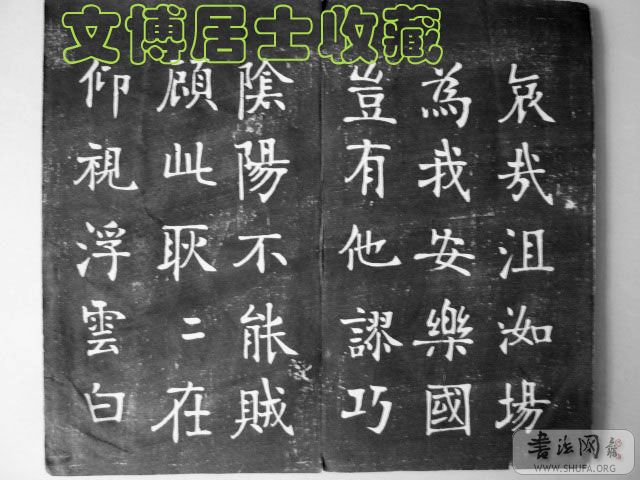 文博居士收藏
哀哉沮洳場
為我安樂國
豈有他謬巧
陰陽不能賊
顧此耿〻在
仰視浮雲白
書法网
WWW.SHUFA.ORG